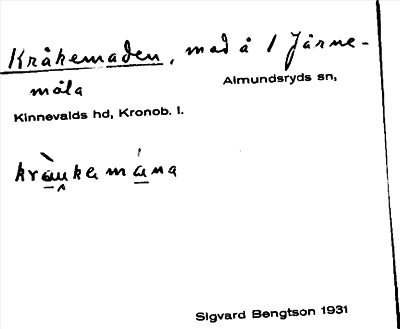 Kråkemaden, mad å 1 Järne-
måla
Almundsryds sn,
Kinnevalds hd, Kronob. l.
kràu̯kamána
Sigvard Bengtson 1931